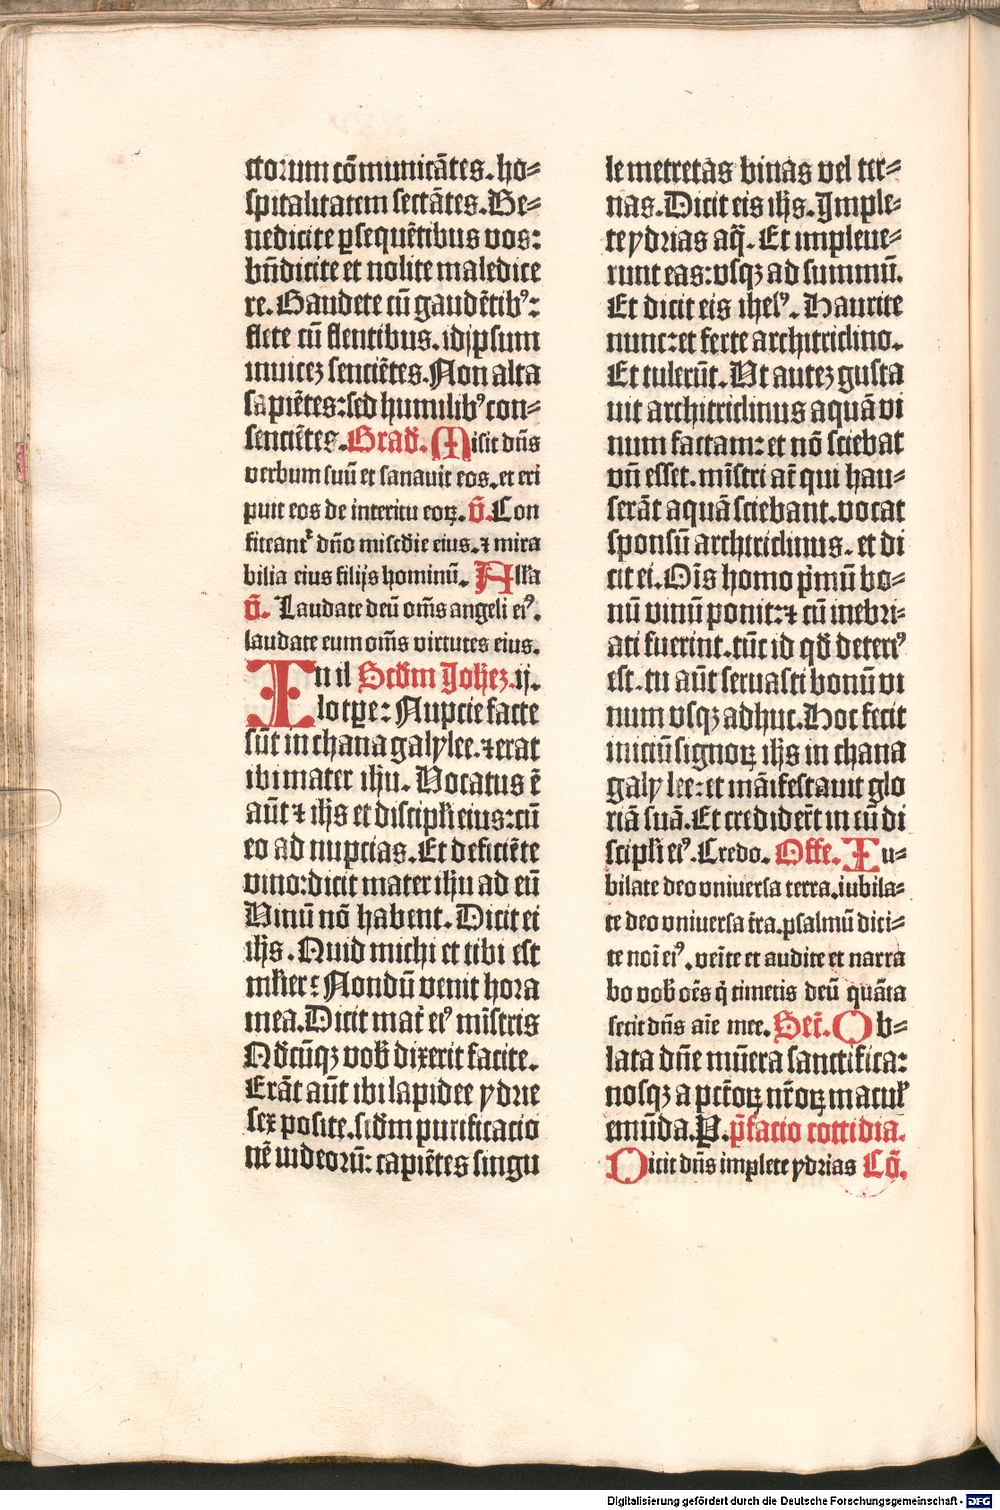 ctorum cōmunicātes. ho⸗
spitalitatem sectātes. Be⸗
nedicite ꝑsequētibus vos:
bn̄dicite et nolite maledice
re. Gaudete cū gaudētibꝰ:
flete cū flentibus. idipsum
inuicez sentiētes. Non alta
sapiētes: sed humilibꝰ con⸗
sentiētes. Grad̄. Misit dn̄s
verbum suū et sanauit eos. et eri
puit eos de interitu eoꝝ. v̄. Con
fiteant᷑ dn̄o misc̄die eius. ⁊ mira
bilia eius filijs hominū. Alla
v̄. Laudate deū om̄s angeli eiꝰ.
laudate eum om̄s virtutes eius.
In il Scd̄m Joh̄ez. ij.
lo tꝑe: Nuptie facte
sūt in chana galylee. ⁊ erat
ibi mater ih̄u. Vocatus ē
aūt ⁊ ih̄s et discipl̄i eius: cū
eo ad nuptias. Et deficiēte
vino: dicit mater ih̄u ad eū
Vinū nō habent. Dicit ei
ih̄s. Quid michi et tibi est
ml̄ier: Nondū venit hora
mea. Dicit mat̄ eiꝰ mīstris
Qd̄cūqꝫ vob̄ dixerit facite.
Erāt aūt ibi lapidee ydrie
sex posite. scd̄m purificatio
nē iudeorū: capiētes singu
le metretas binas vel ter⸗
nas. Dicit eis ih̄s. Imple⸗
te ydrias aq̄. Et impleue⸗
runt eas: vsqꝫ ad summū.
Et dicit eis ihesꝰ. Haurite
nunc: et ferte architriclino.
Et tulerūt. Vt autez gusta
uit architriclinus aquā vi
num factam: et nō sciebat
vn̄ esset. mīstri at̄ qui hau⸗
serāt aquā sciebant. vocat
sponsū architriclinus. et di
cit ei. Oīs homo p̄mū bo⸗
nū vinū ponit: ⁊ cū inebri⸗
ati fuerint. tūc id qd̄ deteriꝰ
est. tu aūt seruasti bonū vi
num vsqꝫ adhuc. Hoc fecit
iniciū signoꝝ ih̄s in chana
galylee: et māifestauit glo
riā suā. Et crediderūt in eū di
scipl̄i eiꝰ. Credo. Offe. Iu⸗
bilate deo vniuersa terra. iubila⸗
te deo vniuersa t̄ra. psalmū dici⸗
te noī eiꝰ. veīte et audite et narra
bo vob̄ oēs q̄ timetis deū quāta
fecit dn̄s aīe mee. Secr̄. Ob⸗
lata dn̄e mūera sanctifica:
nosqꝫ a pct̄oꝝ nr̄oꝝ macul̄
emūda. P. p̄facio cottidia.
Dicit dn̄s implete ydrias Cō.
Digitalisierung gefördert durch die Deutsche Forschungsgemeinschaft - DFG